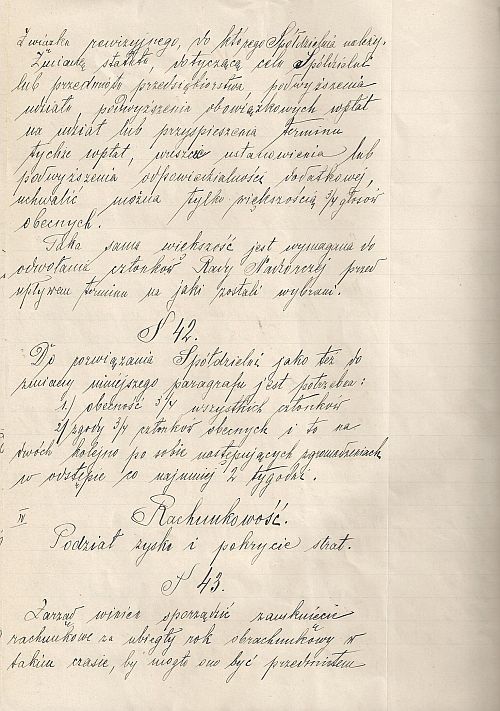 Związku rewizyjnego, do którego Spółdzielnia należy.
Zmianę statutu, dotyczącą celu Spółdzielni
lub przedmiotu przedsiębiorstwa, podwyższenia
udziału podwyższenia obowiązkowych wpłat
na udział lub przyspieszenia terminu
tychże wpłat, wreszcie ustanowienia lub
podwyższenia odpowiedzialności dodatkowej,
uchwalić można tylko większością 3/4 głosów
obecnych.
Taka sama większość jest wymagana do
odwołania członków Rady Nadzorczej przed
upływem terminu na jaki zostali wybrani.
§ 42.
Do rozwiązania Spółdzielni jako też do
zmiany niniejszego paragrafu jest potrzeben:
1.) obecność 3/4 wszystkich członków
2) zgody 3/4 członków obecnych i to na
dwóch kolejno po sobie następujących zgromadzeniach
w odstępie co najmniej 2 tygodni.
IV Rachunkowość.
Podział zysku i pokrycie strat.
§ 43.
Zarząd winien sporządzić zamknięcie
rachunkowe za ubiegły rok obrachunkowy w
takim czasie, by mogło ono być przedmiotem